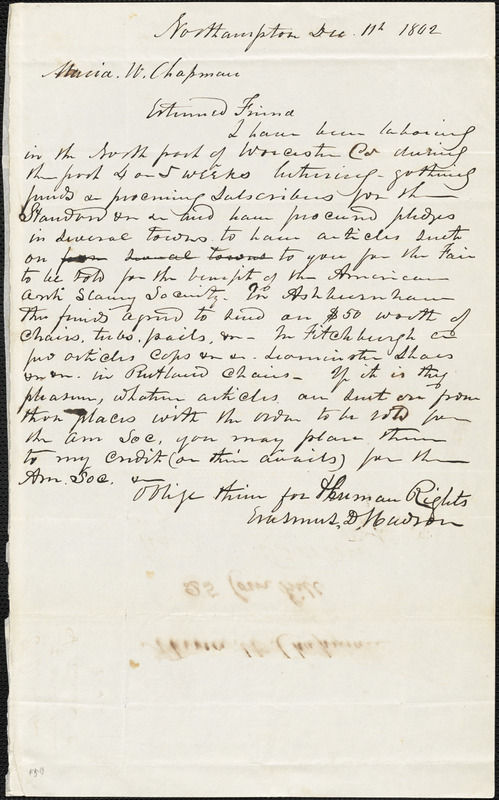 Northampton Dec. 11th 1842
Maria. W. Chapman
Esteemed Friend
I have been laboring
in the North part of Worcester Co during
the past 4 or 5 weeks lecturing - getting
funds & procuring subscribers for the
Standard &c &c and have procured pledges
in several towns to have articles sent
on from several towns to you for the Fair
to be sold for the benefit of the American
Anti Slavery Society. In Ashburnham
the funds agreed to send on $50 worth of
Chairs, tubs, pails, &c - In Fitchburgh a
few articles Caps &c &c. Leominster Shoes
&c &c. in Rutland Chairs - If it is thy
pleasure, whatever articles are sent on from
those places with the order to be sold for
the Am Soc, you may place them
to my credit (or their avails) for the
Am. Soc. &
Oblige thine for Human Rights
Erasmus, D, Hudson
25 Corn hill
Maria W. Chapman